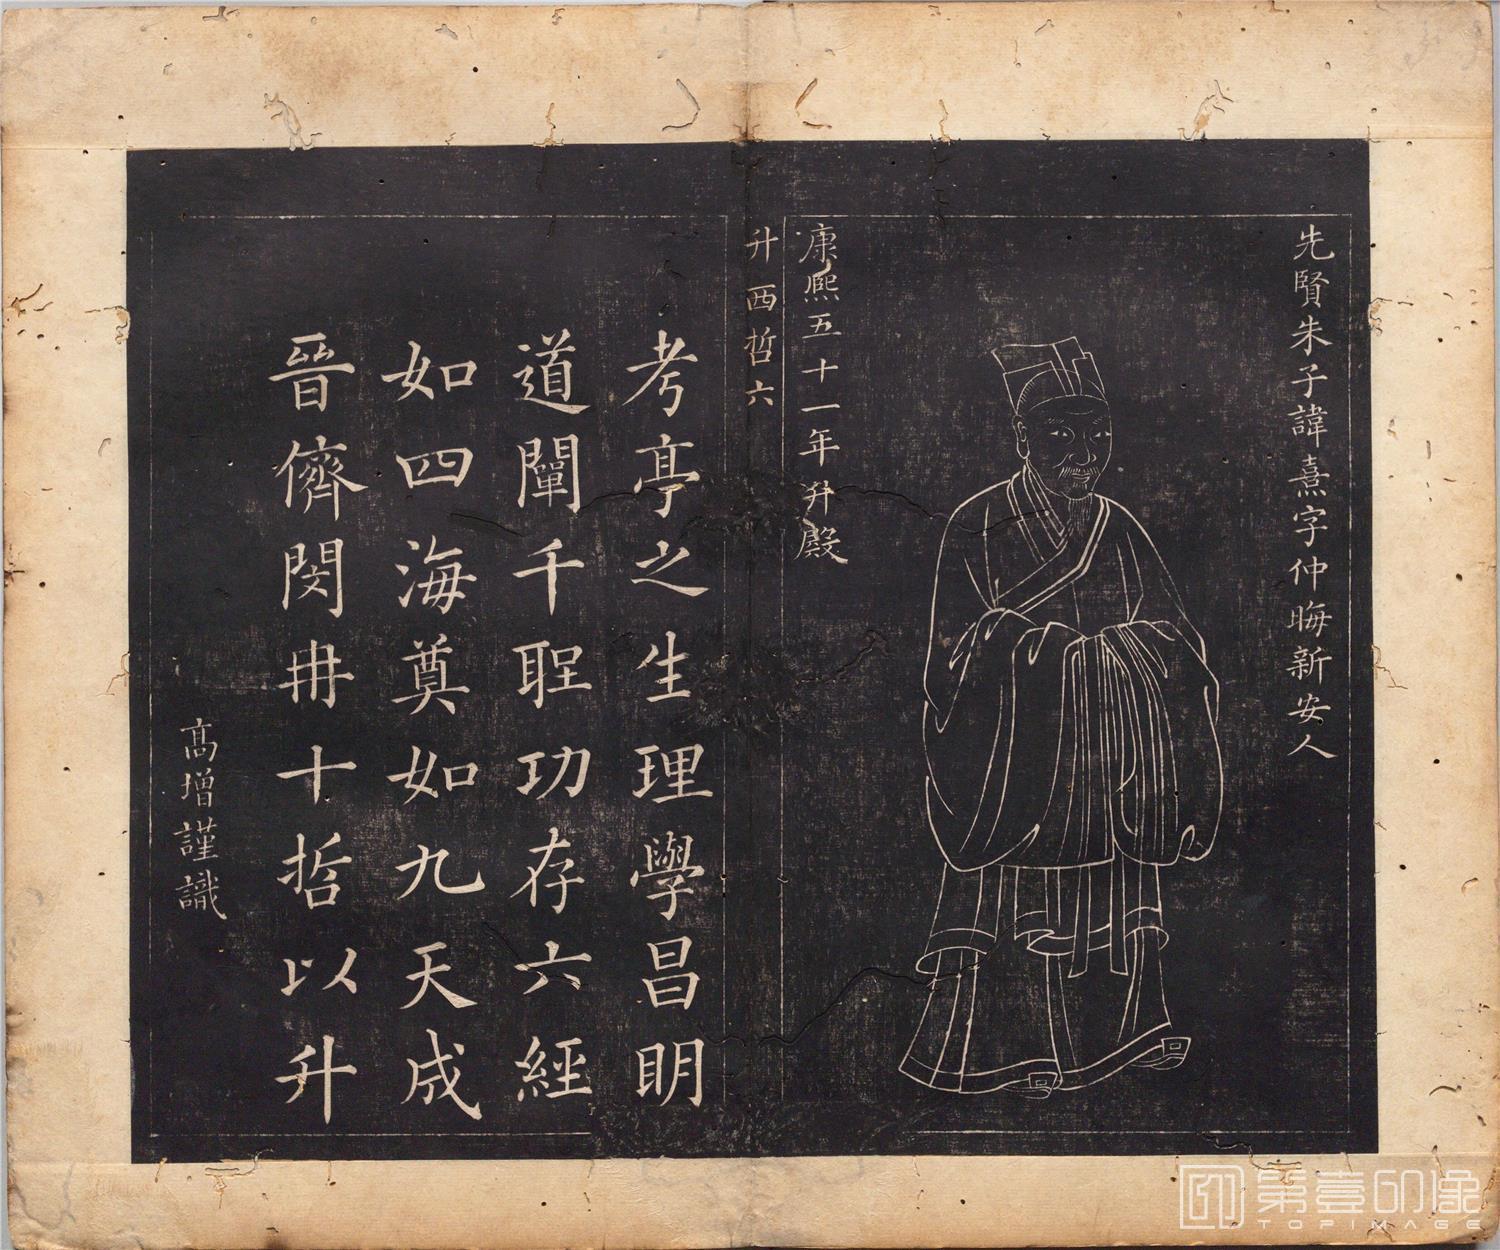 先賢朱子諱熹字仲晦新安人
康熙五十一年升殿
升西哲六
考亭之生理學昌明
道闡千聖功存六經
如四海奠如九天成
晉儕閔冉十哲以升
高增謹識
第壹印像
TOPIMAGE